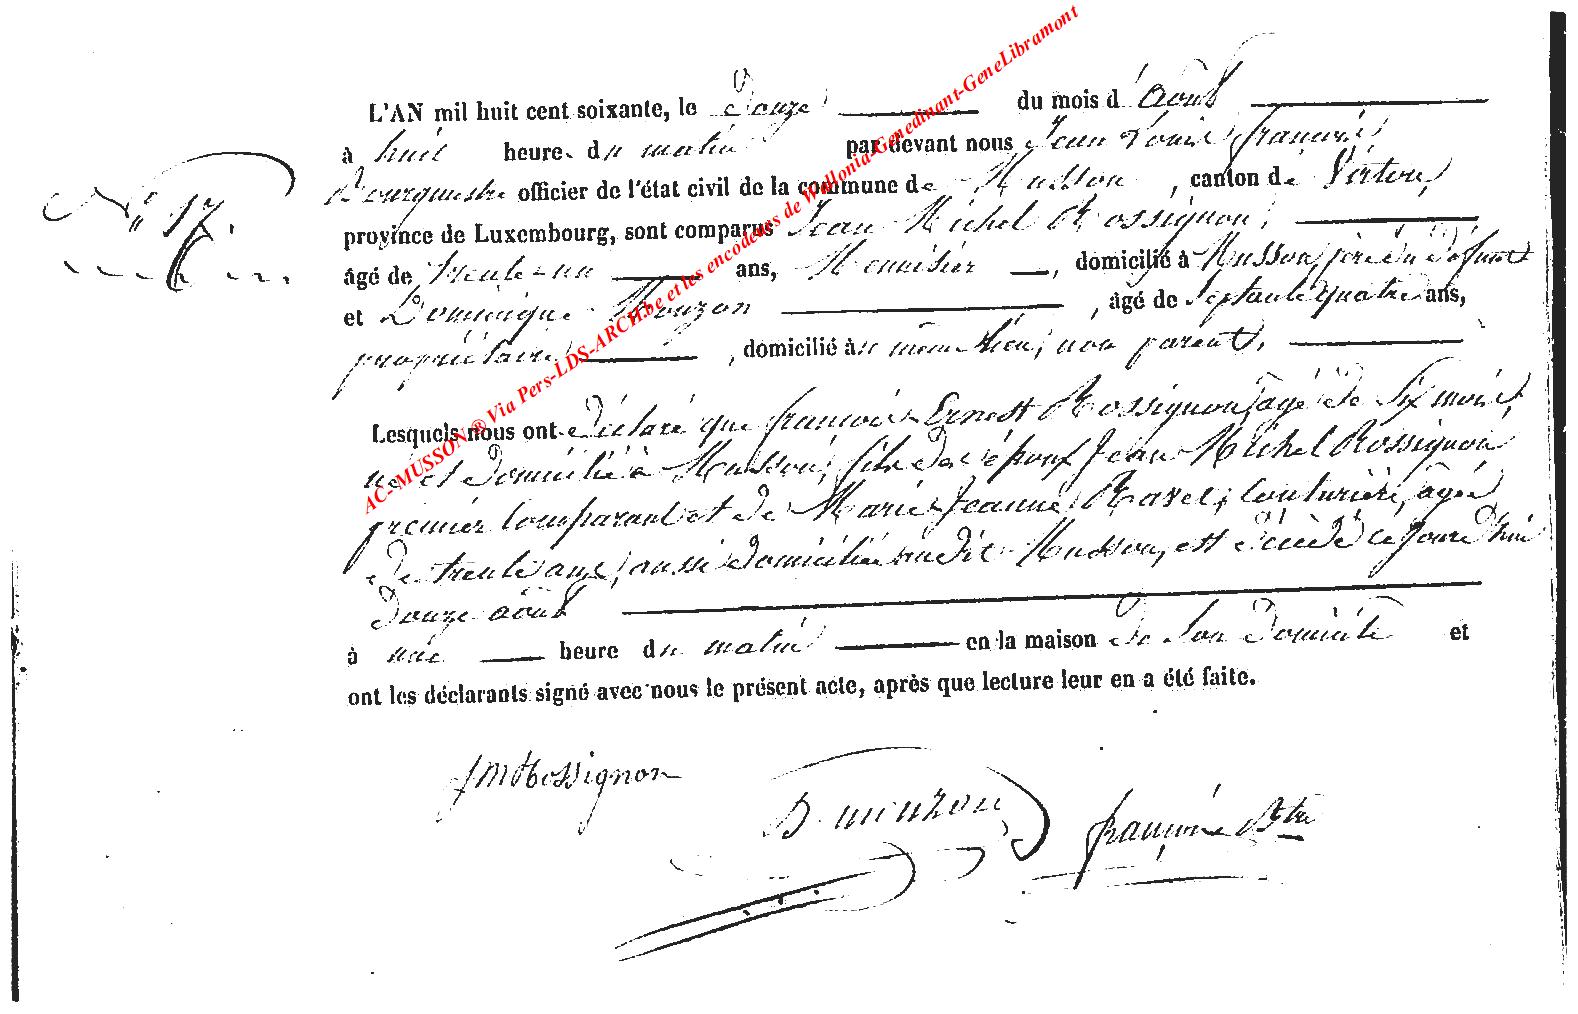 N° 17.
L'AN mil huit cent soixante, le Douze du mois d'Août
à huit heure. du matin par devant nous Jean Louis françois
Bourgmestre officier de l'état civil de la commune de Musson, canton de Virton,
province de Luxembourg, sont comparus Jean Michel Rossignon,
âgé de trente-un ans, Menuisier, domicilié à Musson, père du défunt
et Dominique Mouzon, âgé de Septante quatre ans,
propriétaire, domicilié au même lieu, non parent,
Lesquels nous ont déclaré que françois Ernest Rossignon, âgé de Six mois,
né et domicilié à Musson, fils des époux Jean Michel Rossignon
premier Comparant et de Marie Jeanne Ravet, Couturière, âgée
de trente ans, aussi domiciliée audit Musson, est décédé ce jourd'hui
douze août
à une heure du matin en la maison de Son domicile et
ont les déclarants signé avec nous le présent acte, après que lecture leur en a été faite.
JMRossignon
D. mouzon
françois Btre
AC-MUSSON ® Via Pers-LDS-ARCH.be et les encodeurs de Wallonia-Genedinant-GeneLibramont